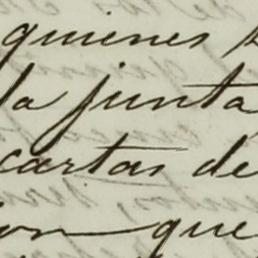 quienes
la junta
cartas de
ion que